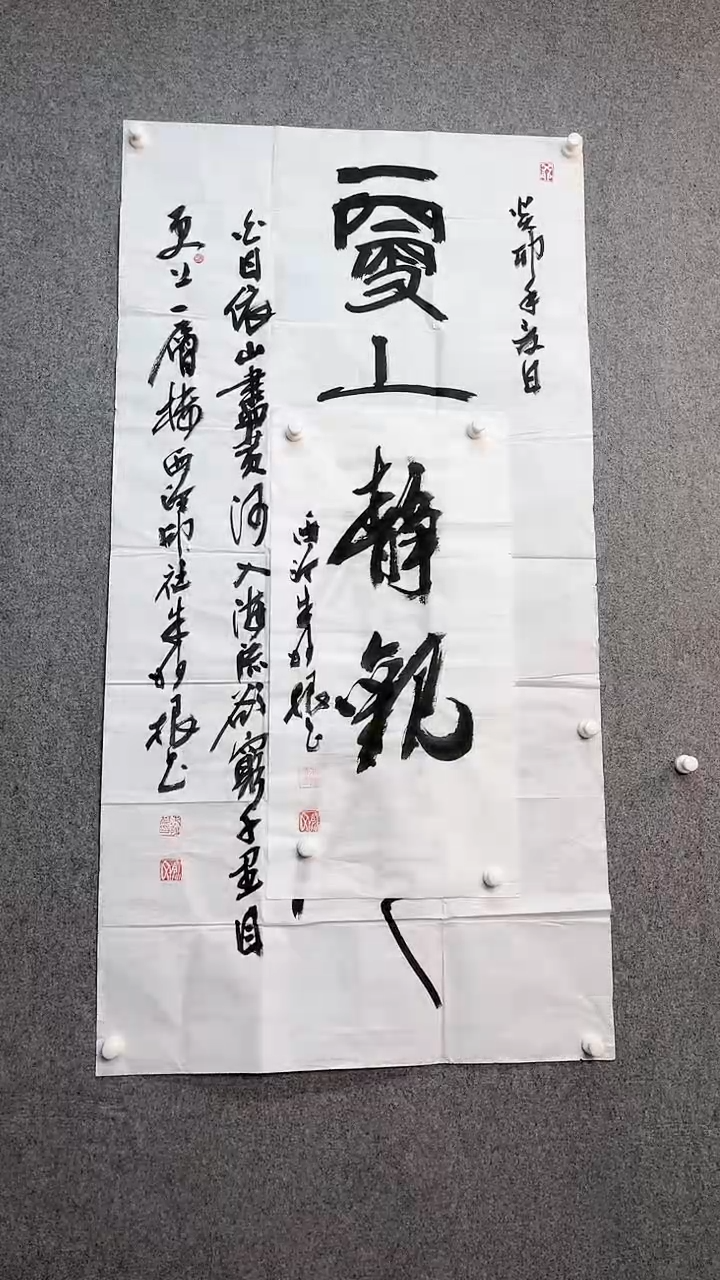 癸卯年日
上
静觀
西泠朱妙根书
白日依山盡黄河入海流欲窮千里目
更上一層楼西泠印社朱妙根书